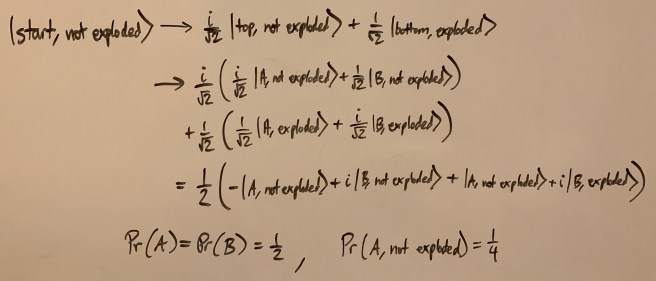 |start, not exploded⟩ → i/√2 |top, not exploded⟩ + 1/√2 |bottom, exploded⟩
→ i/√2 (i/√2 |A, not exploded⟩ + 1/√2 |B, not exploded⟩)
+ 1/√2 (1/√2 |A, exploded⟩ + i/√2 |B, exploded⟩)
= 1/2 (-|A, not exploded⟩ + i|B, not exploded⟩ + |A, not exploded⟩ + i|B, exploded⟩)
Pr(A) = Pr(B) = 1/2, Pr(A, not exploded) = 1/4